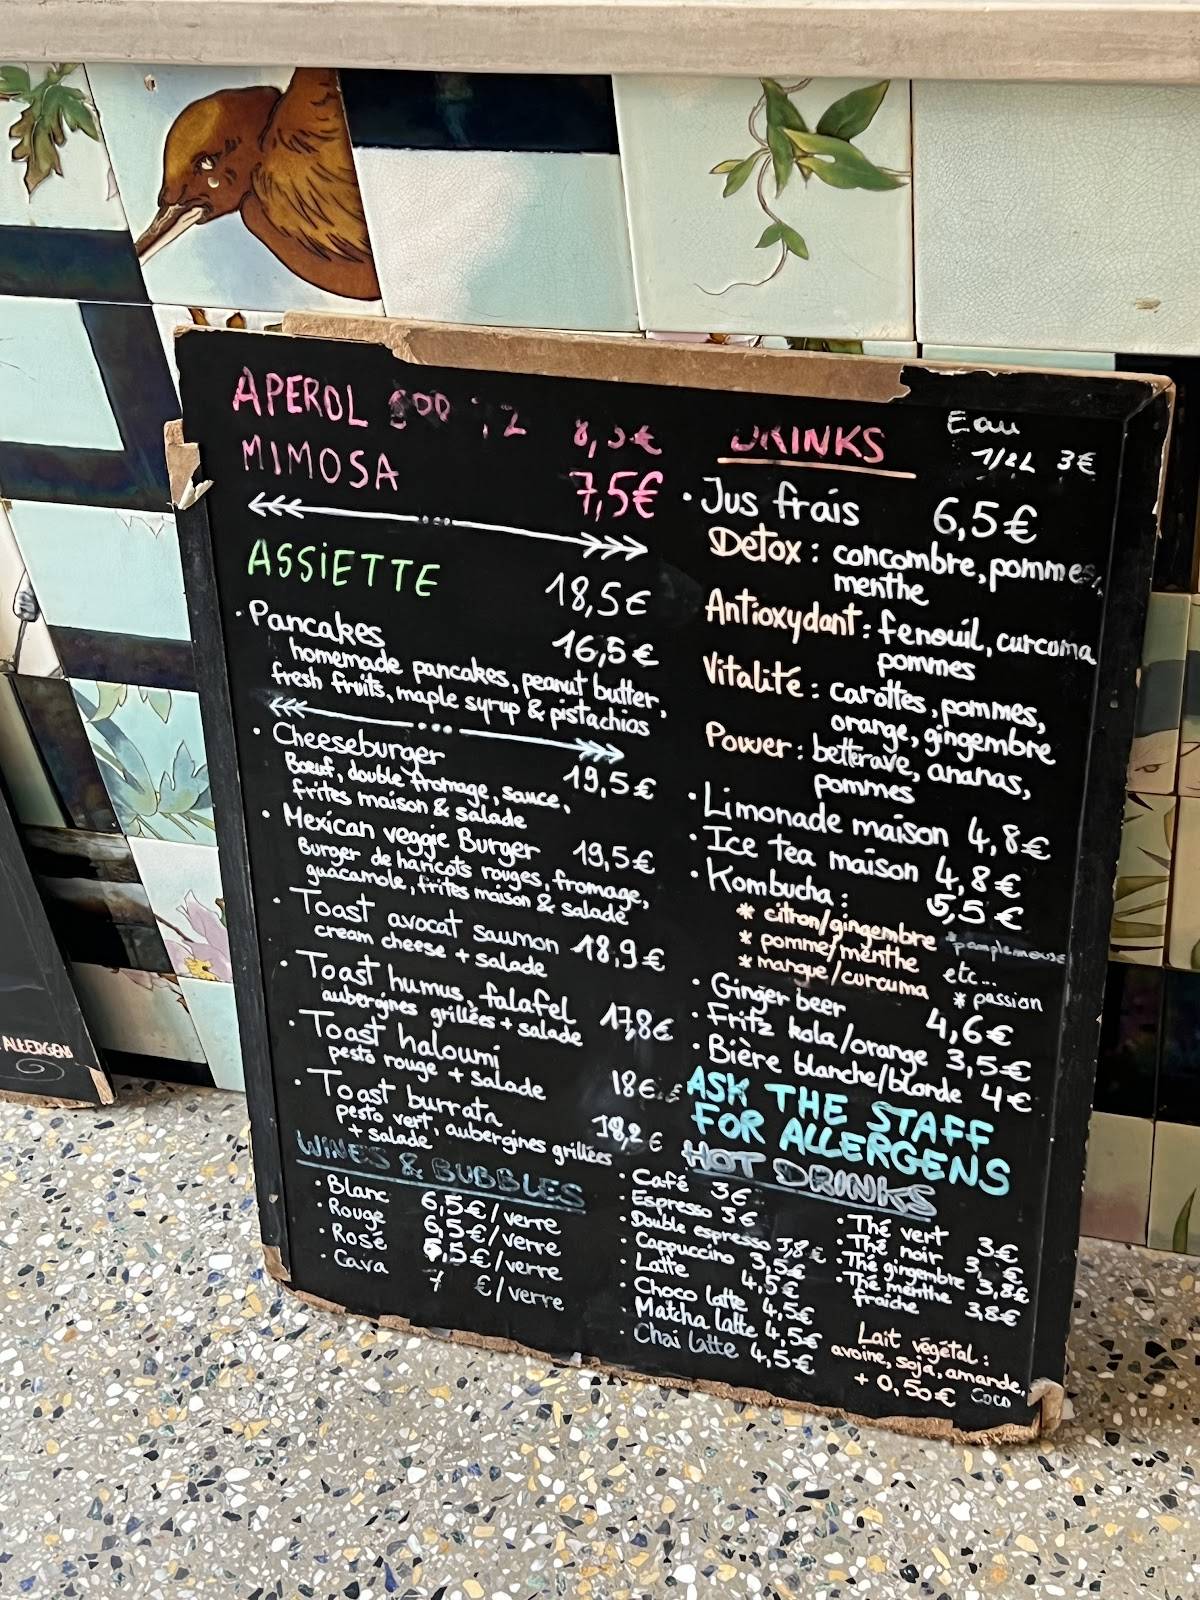 APEROL
8,5€
MIMOSA 7,5€
ASSIETTE 18,5€
· Pancakes 16,5€
homemade pancakes, peanut butter,
fresh fruits, maple syrup & pistachios
· Cheeseburger 19,5€
Bœuf, double fromage, sauce,
frites maison & salade
· Mexican veggie Burger 19,5€
Burger de haricots rouges, fromage,
guacamole, frites maison & salade
· Toast avocat saumon 18,9€
cream cheese + salade
· Toast humus, falafel 17,8€
aubergines grillées + salade
· Toast haloumi 18€
pesto rouge + salade
· Toast burrata 18,2€
pesto vert, aubergines grillées
+ salade
WINES & BUBBLES
· Blanc 6,5€/verre
· Rouge 6,5€/verre
· Rosé 6,5€/verre
· Cava 7 €/verre
DRINKS
Eau
1/2L 3€
· Jus frais 6,5€
Detox : concombre, pommes,
menthe
Antioxydant : fenouil, curcuma
pommes
Vitalité : carottes, pommes,
orange, gingembre
Power : betterave, ananas,
pommes
· Limonade maison 4,8€
· Ice tea maison 4,8€
· Kombucha : 5,5€
* citron/gingembre * pamplemousse
* pomme/menthe etc...
* mangue/curcuma * passion
· Ginger beer 4,6€
· Fritz kola/orange 3,5€
· Bière blanche/blonde 4€
ASK THE STAFF
FOR ALLERGENS
HOT DRINKS
· Café 3€
· Espresso 3€
· Double espresso 3,8€
· Cappuccino 3,5€
· Latte 4,5€
· Choco latte 4,5€
· Matcha latte 4,5€
· Chai latte 4,5€
· Thé vert 3€
· Thé noir 3, €
· Thé gingembre 3,8€
· Thé menthe
fraiche 3,8€
Lait végétal :
avoine, soja, amande,
+ 0,50€ Coco
ALLERGENS